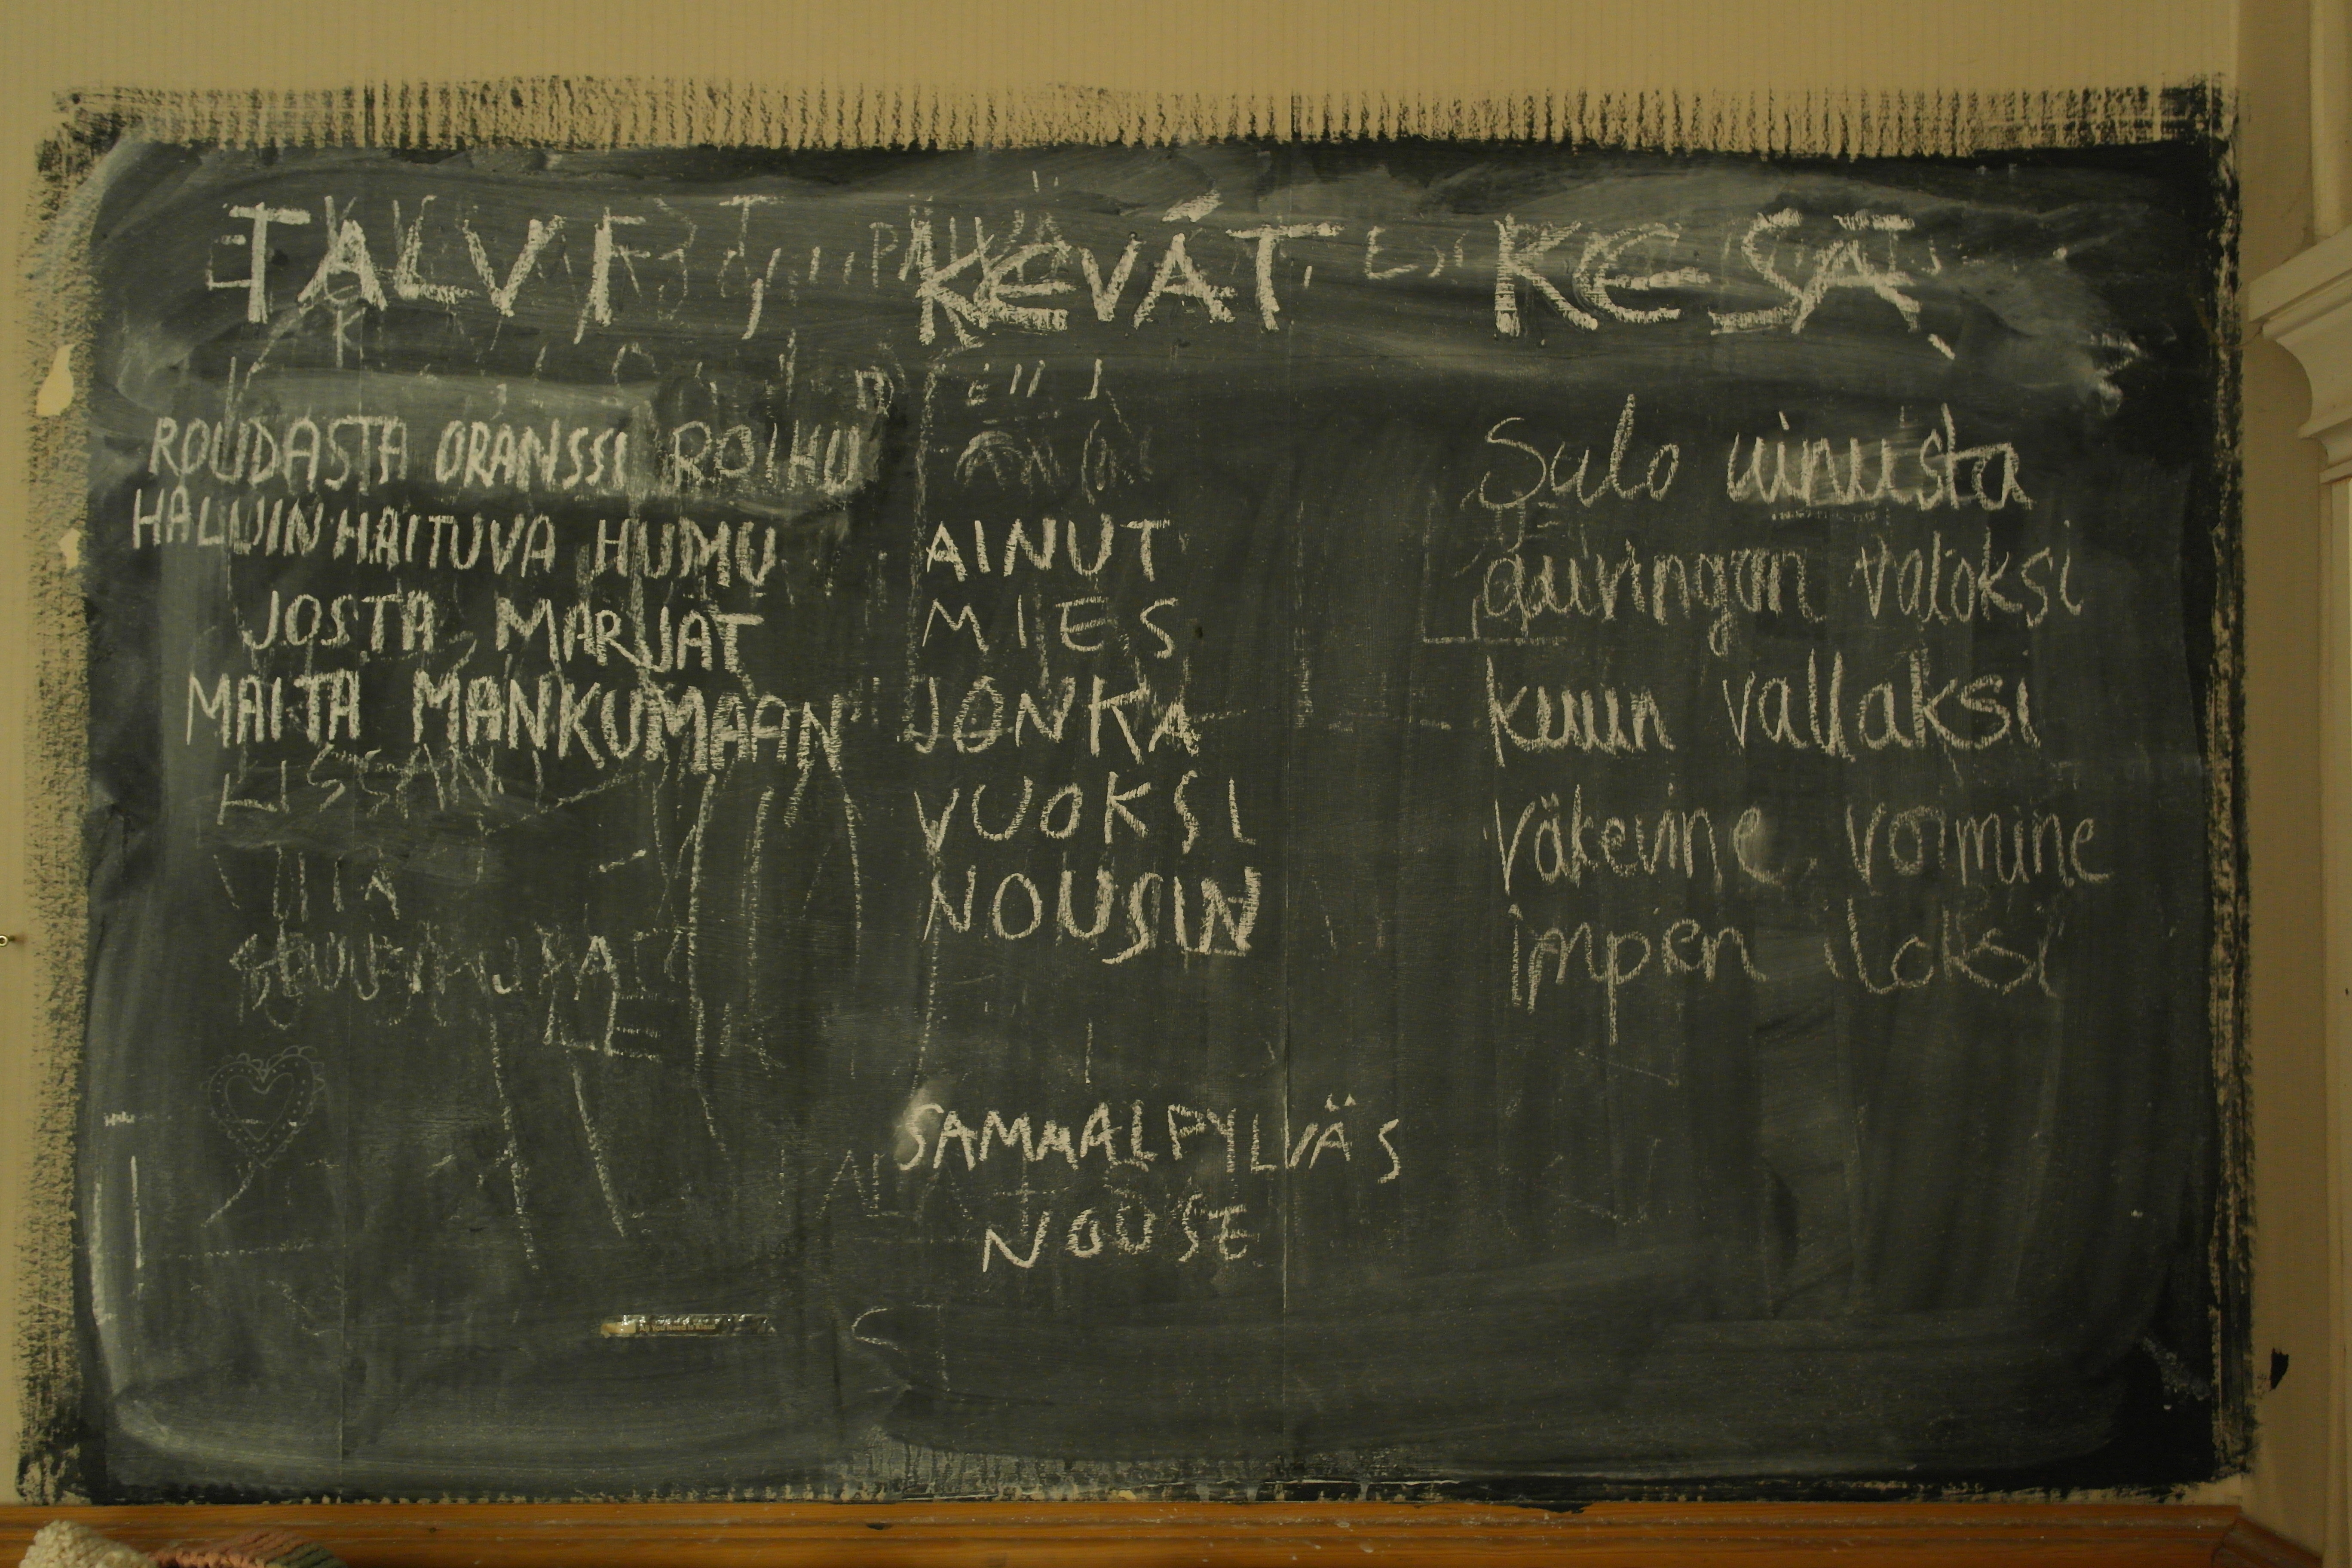 TALVI
ROUDASTA ORANSSI ROIHU
HALUIN HAITUVA HUMU
JOSTA MARJAT
MAITA MANKUMAAN
KISSAN
KEVÄT
AINUT
MIES
JONKA
VUOKSI
NOUSIN
SAMMALPYLVÄS
NOUSE
KESÄ
Salo uinusta
auringon valoksi
kuun vallaksi
väkevine voimine
impien iloksi